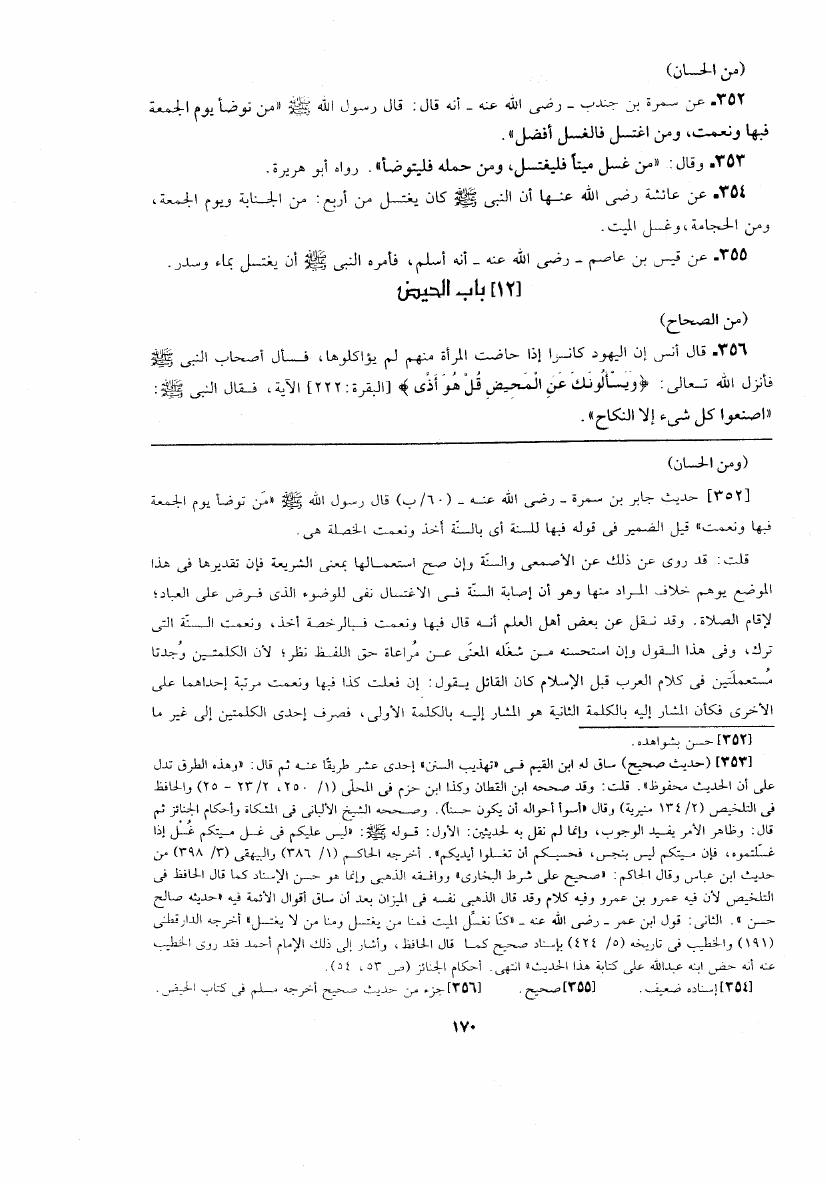 (من الحسان)
٣٥٢ـ عن سمرة بن جندب ـ رضى الله عنه ـ أنه قال: قال رسول الله ﷺ «من توضأ يوم الجمعة
فبها ونعمت، ومن اغتسل فالغسل أفضل».
٣٥٣ـ وقال: «من غسل ميتاً فليغتسل، ومن حمله فليتوضأ». رواه أبو هريرة.
٣٥٤ـ عن عائشة رضى الله عنها أن النبى ﷺ كان يغتسل من أربع: من الجنابة ويوم الجمعة،
ومن الحجامة، وغسل الميت.
٣٥٥ـ عن قيس بن عاصم ـ رضى الله عنه ـ أنه أسلم، فأمره النبى ﷺ أن يغتسل بماء وسدر.
[١٢] باب الحيض
(من الصحاح)
٣٥٦ـ قال أنس إن اليهود كانوا إذا حاضت المرأة منهم لم يؤاكلوها، فسأل أصحاب النبى ﷺ
فأنزل الله تعالى: ﴿وَيَسْأَلُونَكَ عَنِ الْمَحِيضِ قُلْ هُوَ أَذًى﴾ [البقرة:٢٢٢] الآية، فقال النبى ﷺ:
«اصنعوا كل شىء إلا النكاح».
(ومن الحسان)
[٣٥٢] حديث جابر بن سمرة ـ رضى الله عنه ـ (٦٠/ب) قال رسول الله ﷺ «مَن توضأ يوم الجمعة
فبها ونعمت» قيل الضمير فى قوله فبها للسنة أى بالسنّة أخذ ونعمت الخصلة هى.
قلت: قد روى عن ذلك عن الأصمعى والسنّة وإن صح استعمالها بمعنى الشريعة فإن تقديرها فى هذا
الموضع يوهم خلاف المراد منها وهو أن إصابة السنّة فى الاغتسال نفى للوضوء الذى فرض على العباد؛
لإقام الصلاة. وقد نقل عن بعض أهل العلم أنه قال فبها ونعمت فبالرخصة أخذ، ونعمت السنّة التى
ترك، وفى هذا القول وإن استحسنه من شغَله المعنَى عن مُراعاة حق اللفظ نظر؛ لأن الكلمتين وُجدتا
مُستعملَتين فى كلام العرب قبل الإسلام كان القائل يقول: إن فعلت كذا فبها ونعمت مرتبة إحداهما على
الأخرى فكأن المشار إليه بالكلمة الثانية هو المشار إليه بالكلمة الأولى، فصرف إحدى الكلمتين إلى غير ما
[٣٥٢] حسن بشواهده.
[٣٥٣] (حديث صحيح) ساق له ابن القيم فى «تهذيب السنن» إحدى عشر طريقًا عنه ثم قال: «وهذه الطرق تدل
على أن الحديث محفوظ». قلت: وقد صححه ابن القطان وكذا ابن حزم فى المحلّى (١/ ٢٥٠، ٢/ ٢٣ - ٢٥) والحافظ
فى التلخيص (٢/ ١٣٤ منيرية) وقال «أسوأ أحواله أن يكون حسناً). وصححه الشيخ الألبانى فى المشكاة وأحكام الجنائز ثم
قال: وظاهر الأمر يفيد الوجوب، وإنما لم نقل به لحديثين: الأول: قوله ﷺ: «ليس عليكم فى غسل ميتكم غُسل إذا
غسلتموه، فإن ميتكم ليس بنجس، فحسبكم أن تغسلوا أيديكم». أخرجه الحاكم (١/ ٣٨٦) والبيهقى (٣/ ٣٩٨) من
حديث ابن عباس وقال الحاكم: «صحيح على شرط البخارى» ووافقه الذهبى وإنما هو حسن الإسناد كما قال الحافظ فى
التلخيص لأن فيه عمرو بن عمرو وفيه كلام وقد قال الذهبى نفسه فى الميزان بعد أن ساق أقوال الأئمة فيه «حديثه صالح
حسن». الثانى: قول ابن عمر ـ رضى الله عنه ـ «كنّا نغسِّل الميت فمنا من يغتسل ومنا من لا يغتسل» أخرجه الدارقطنى
(١٩١) والخطيب فى تاريخه (٥/ ٤٢٤) بإسناد صحيح كما قال الحافظ، وأشار إلى ذلك الإمام أحمد فقد روى الخطيب
عنه أنه حض ابنه عبدالله على كتابة هذا الحديث» انتهى. أحكام الجنائز (ص ٥٣، ٥٤).
[٣٥٤] إسناده ضعيف. [٣٥٥] صحيح. [٣٥٦] جزء من حديث صحيح أخرجه مسلم فى كتاب الحيض.
١٧٠